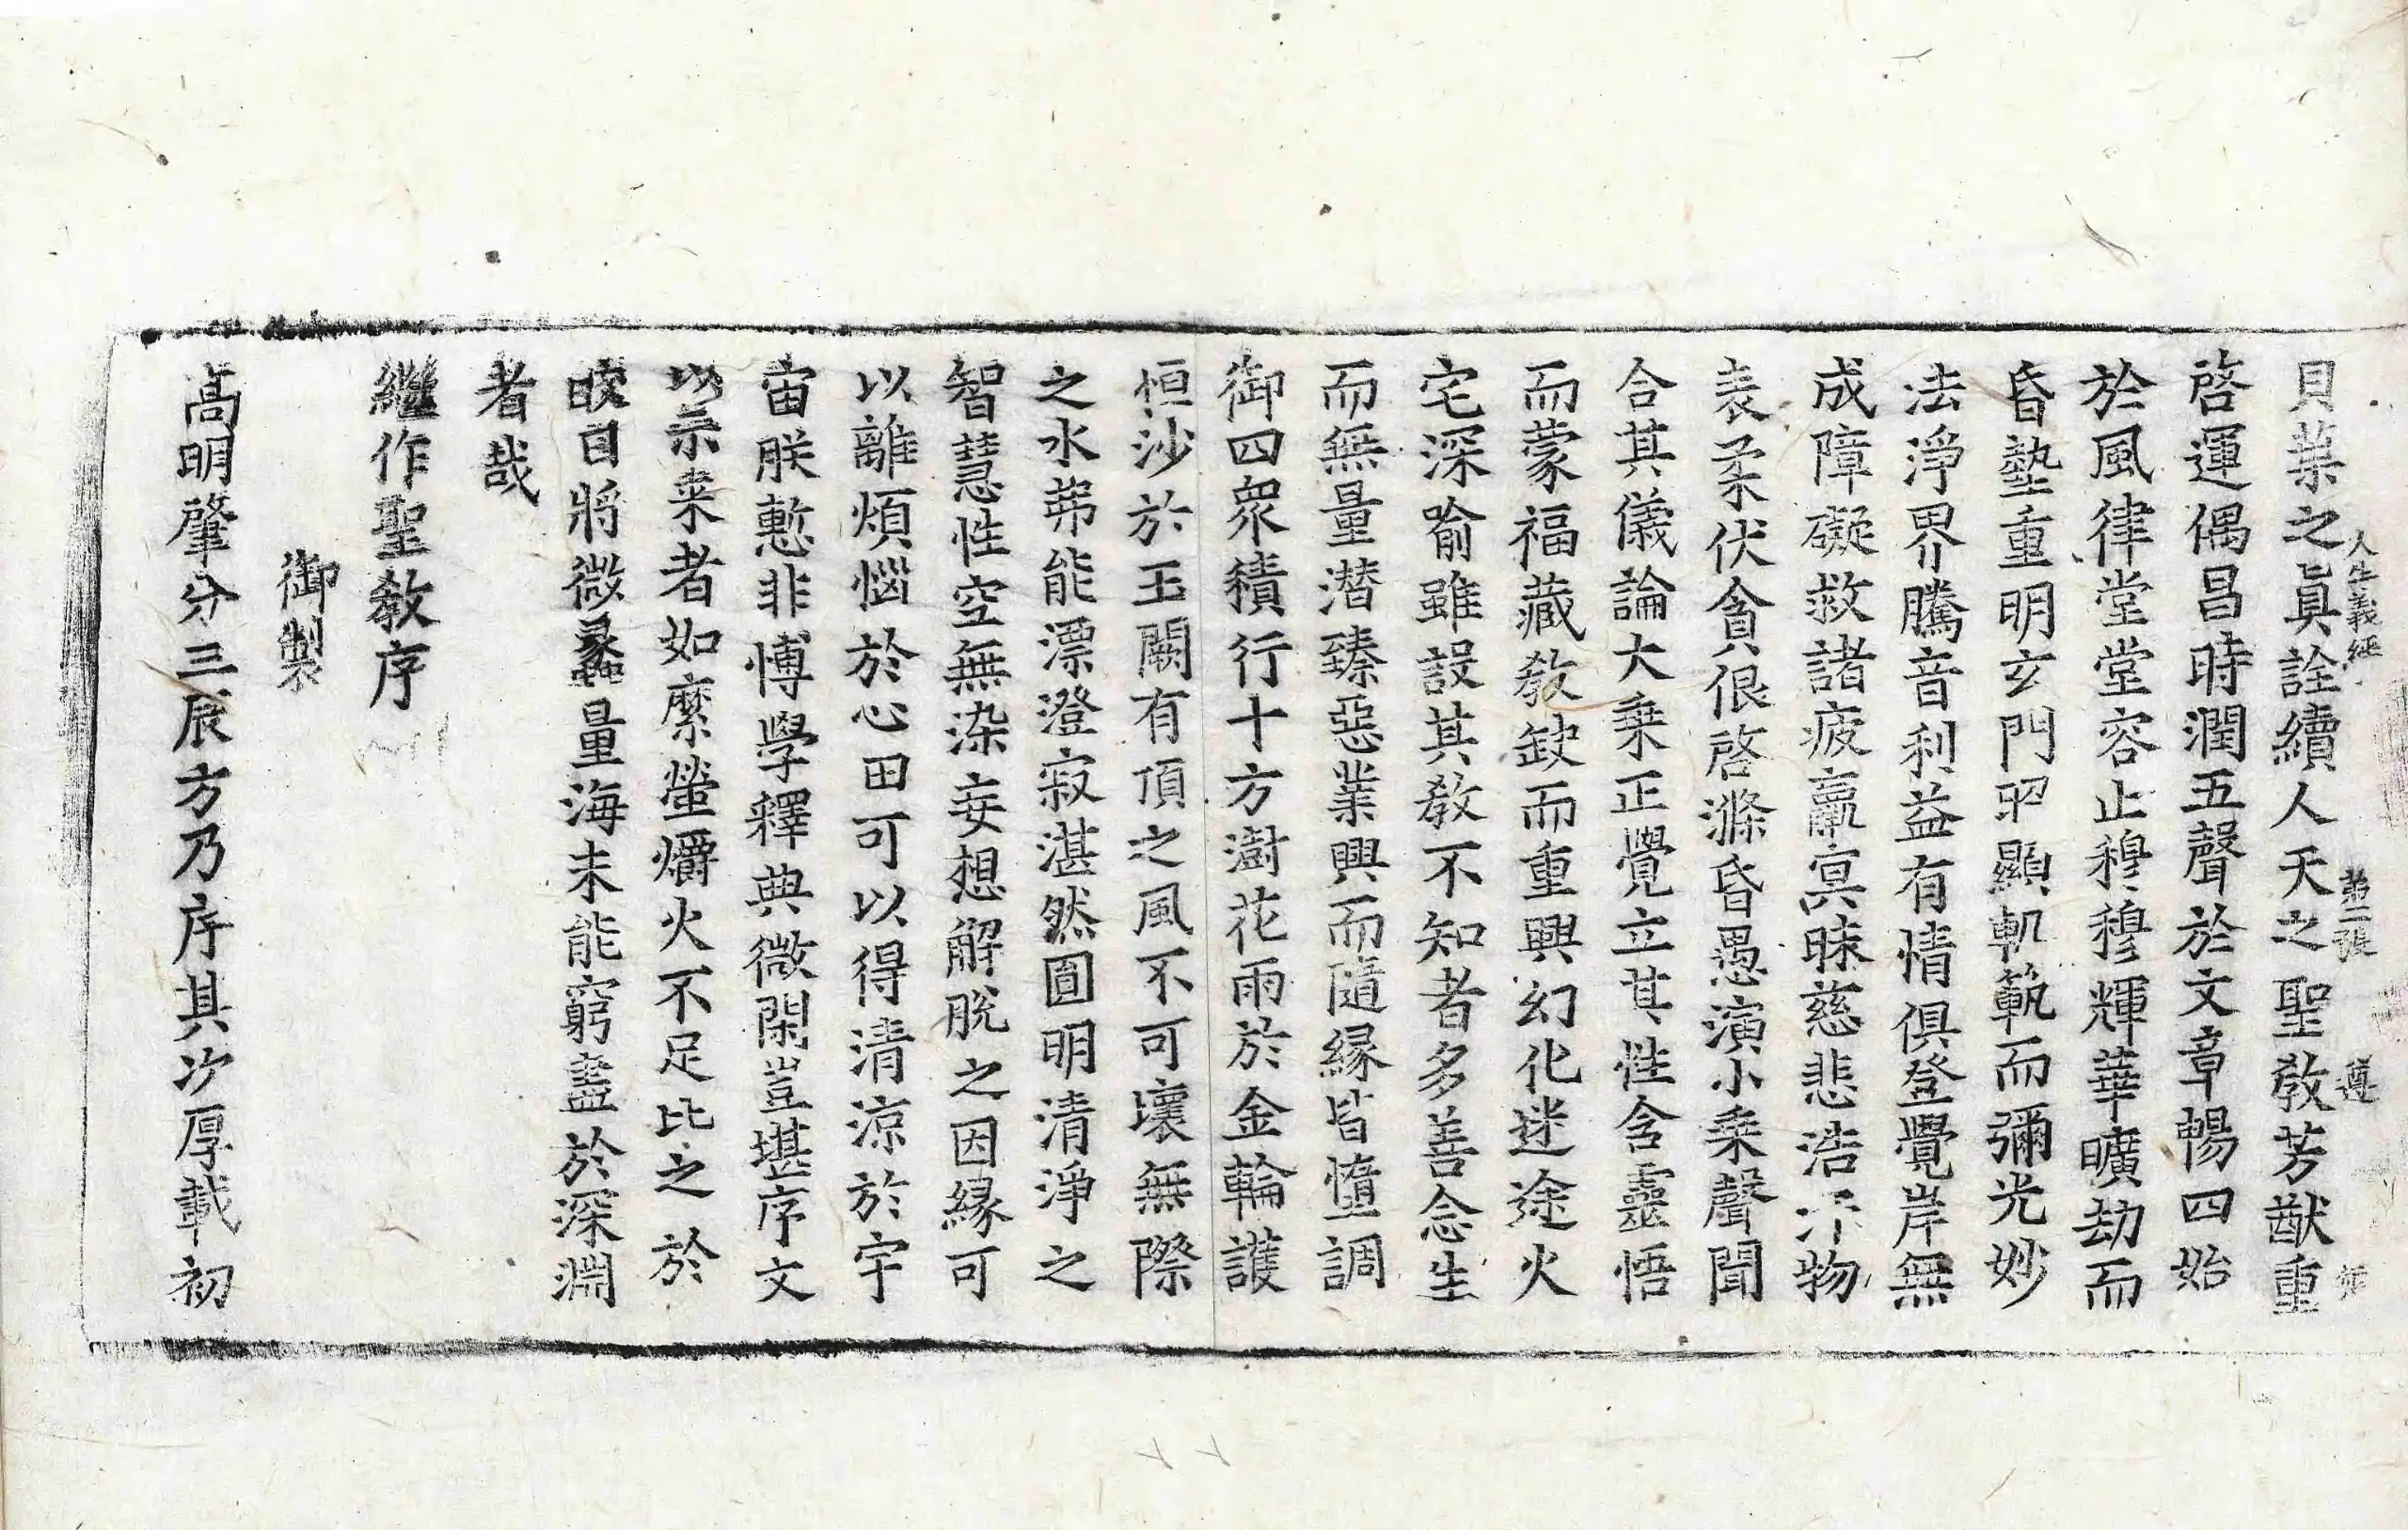 貝葉之眞詮續人天之聖敎芳猷重
啓運偶昌時潤五聲於文章暢四始
於風律堂堂容止穆穆輝華曠劫而
昏墊重明玄門昭顯軌範而彌光妙
法淨界騰音利益有情俱登覺岸無
成障礙救諸疲羸冥昧慈悲浩汗物
表柔伏貪佷啓滌昏愚演小乘聲聞
合其儀論大乘正覺立其性含靈悟
而蒙福藏敎缺而重興幻化迷途火
宅深喻雖設其敎不知者多善念生
而無量潜臻惡業興而隨緣皆墮調
御四眾積行十方澍花雨於金輪護
恒沙於玉闕有頂之風不可壞無際
之水弗能漂澄寂湛然圓明清淨之
智慧性空無染妄想解脫之因緣可
以離煩惱於心田可以得清涼於宇
宙朕慙非博學釋典微閑豈堪序文
以示來者如縻螢爝火不足比之於
晈日將微蠡量海未能窮盡於深淵
者哉
繼作聖敎序
御製
高明肇分三辰方乃序其次厚載初
人生義經 第二張 遵